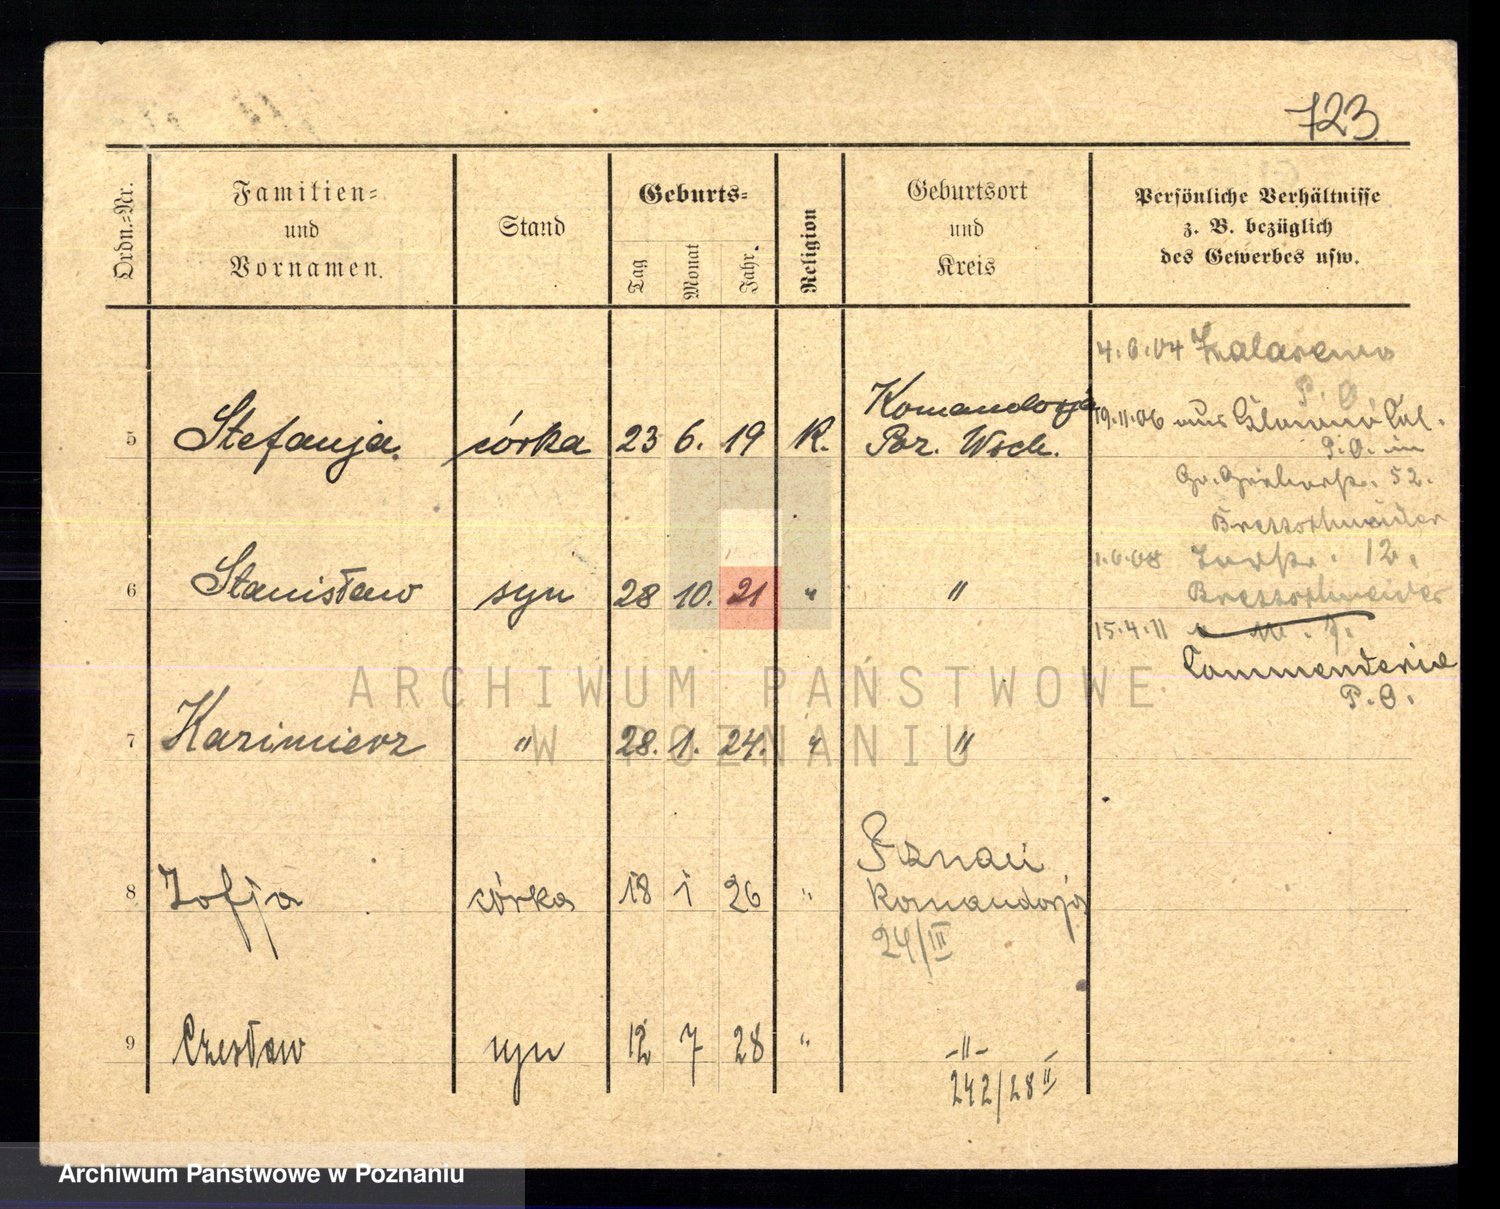 723
Ordn.=Nr.
Familien=
und
Vornamen.
Stand
Geburts=
Tag
Monat
Jahr.
Religion
Geburtsort
und
Kreis
Persönliche Verhältnisse
z. B. bezüglich
des Gewerbes usw.
4.6.04
P. O.
Komandorja
5 Stefanja. córka 23 6. 19 R. Poz. Wsch.
19.11.06 aus
P.O. in
52.
6 Stanisław syn 28 10. 21 " "
12.
15.4.11
Commenderie
P. O.
7 Kazimierz " 28. 1. 24. " "
Poznań
8 Zofja córka 18 1 26 " Komandorja
24/III
9 Czesław syn 12 7 28 " -"-
242/28 II
ARCHIWUM PAŃSTWOWE
W POZNANIU
Archiwum Państwowe w Poznaniu